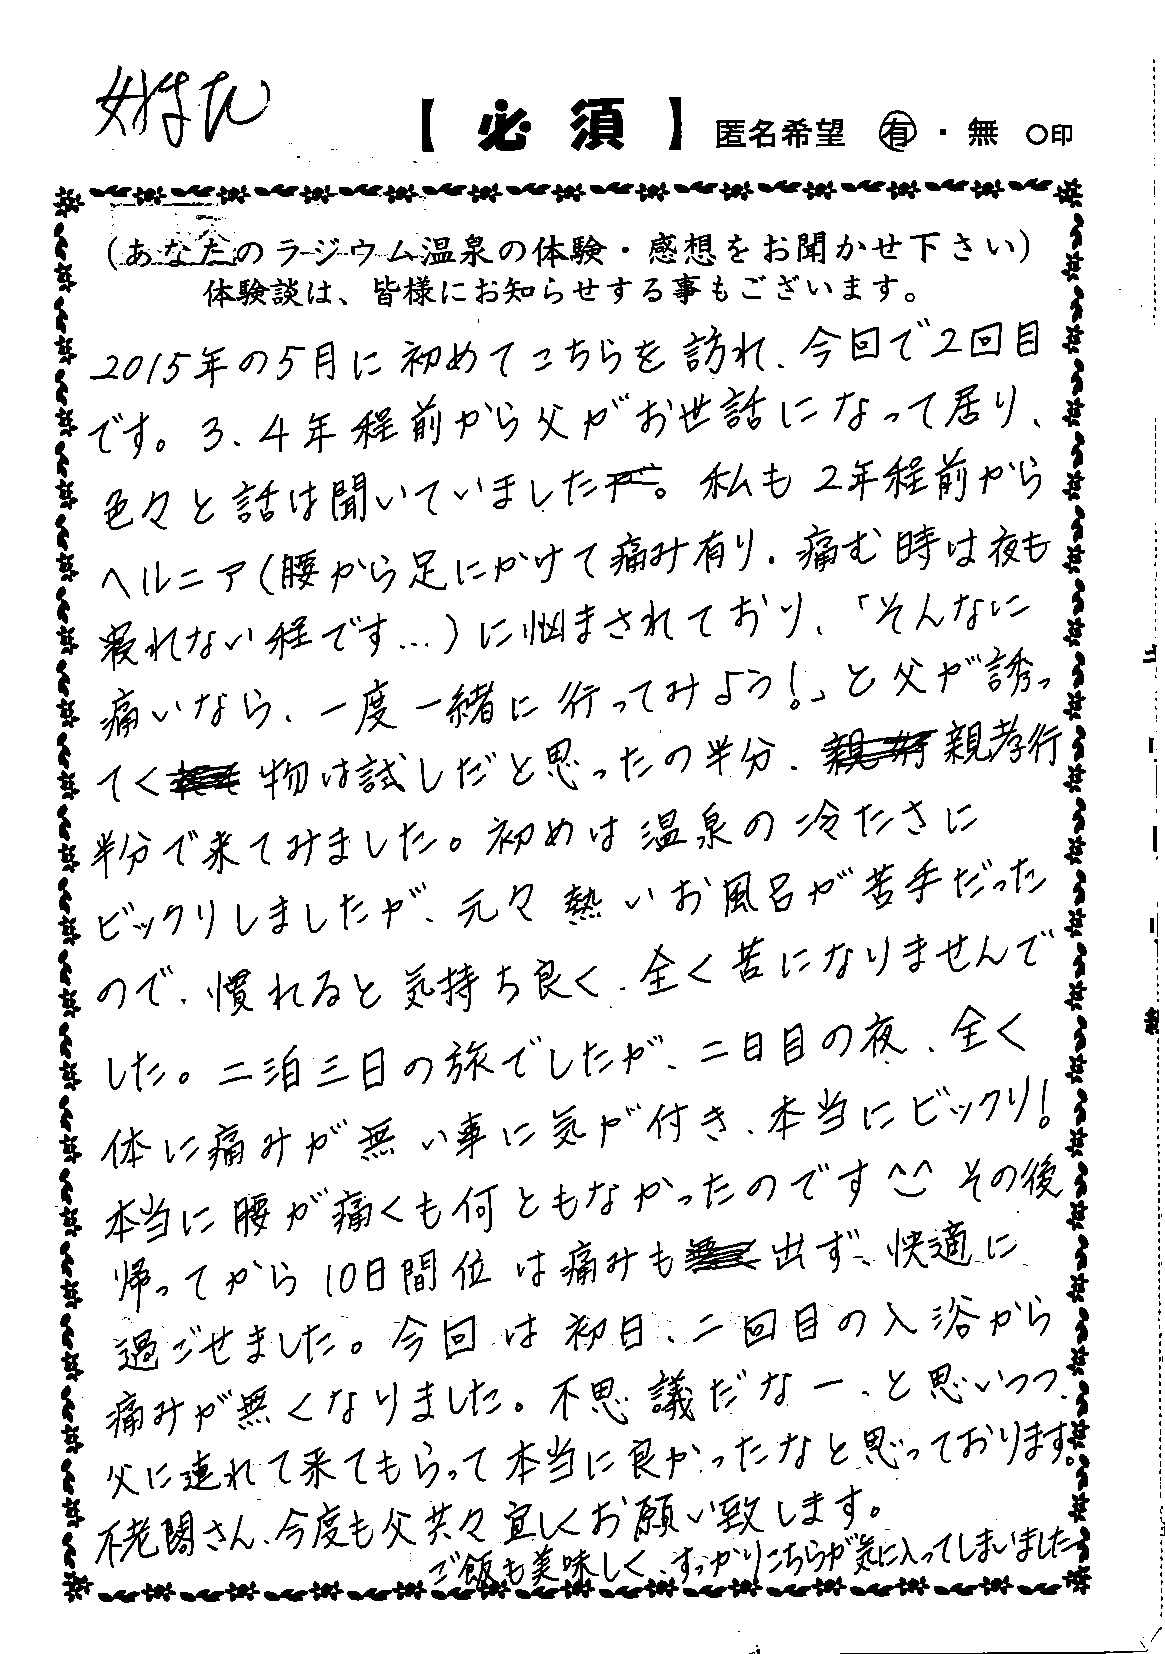 【 必 須 】 匿名希望 有 ・ 無 ○印
(あなたのラジウム温泉の体験・感想をお聞かせ下さい)
体験談は、皆様にお知らせする事もございます。
2015年の5月に初めてこちらを訪れ、今回で2回目
です。3、4年程前から父がお世話になって居り、
色々と話は聞いていました。私も2年程前から
ヘルニア(腰から足にかけて痛み有り、痛む時は夜も
寝れない程です…)に悩まされており、「そんなに
痛いなら、一度一緒に行ってみよう!」と父が誘っ
てく 物は試しだと思ったの半分、親孝行
半分で来てみました。初めは温泉の冷たさに
ビックリしましたが、元々熱いお風呂が苦手だった
ので、慣れると気持ち良く、全く苦になりませんで
した。二泊三日の旅でしたが、二日目の夜、全く
体に痛みが無い事に気が付き、本当にビックリ!
本当に腰が痛くも何ともなかったのです^^ その後
帰ってから10日間位は痛みも出ず、快適に
過ごせました。今回は初日、二回目の入浴から
痛みが無くなりました。不思議だなー、と思いつつ、
父に連れて来てもらって本当に良かったなと思っております。
不老閣さん、今度も父共々宜しくお願い致します。
ご飯も美味しく、すっかりこちらが気に入ってしまいました